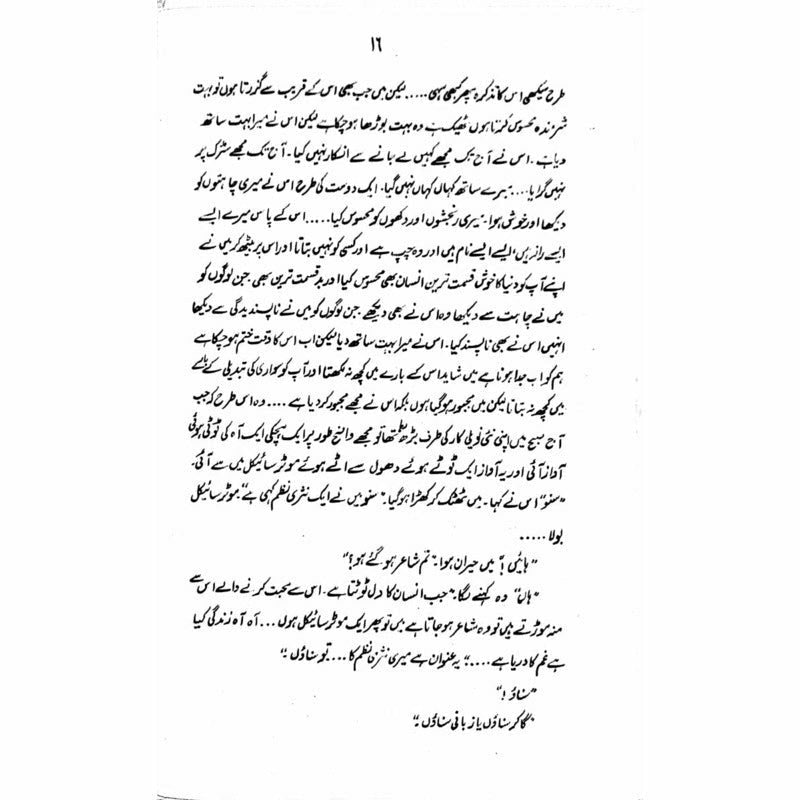 ۱۶
طرح سیکھی اس کا تذکرہ پھر کبھی سہی ..... لیکن میں جب بھی اس کے قریب سے گزرتا ہوں تو بہت
شرمندہ محسوس کرتا ہوں ٹھیک ہے وہ بہت بوڑھا ہو چکا ہے لیکن اس نے میرا بہت ساتھ
دیا ہے ۔ اس نے آج تک مجھے کہیں لے جانے سے انکار نہیں کیا ۔ آج تک مجھے سڑک پر
نہیں گرایا .... میرے ساتھ کہاں کہاں نہیں گیا ۔ ایک دوست کی طرح اس نے میری چاہتوں کو
دیکھا اور خوش ہوا ۔ میری رنجشوں اور دکھوں کو محسوس کیا ..... اس کے پاس میرے ایسے
ایسے راز ہیں، ایسے ایسے نام ہیں اور وہ چپ ہے اور کسی کو نہیں بتاتا اور اس پر بیٹھ کر میں نے
اپنے آپ کو دنیا کا خوش قسمت ترین انسان بھی محسوس کیا اور بدقسمت ترین بھی جن لوگوں کو
میں نے چاہت سے دیکھا وہ اس نے بھی دیکھے جن لوگوں کو میں نے ناپسندیدگی سے دیکھا
انہیں اس نے بھی ناپسند کیا ۔ اس نے میرا بہت ساتھ دیا لیکن اب اس کا وقت ختم ہو چکا ہے
ہم کو اب جدا ہونا ہے میں شاید اس کے بارے میں کچھ نہ لکھتا اور آپ کو سواری کی تبدیلی کے بارے
میں کچھ نہ بتاتا لیکن میں مجبور ہو گیا ہوں بلکہ اس نے مجھے مجبور کر دیا ہے .... وہ اس طرح کہ جب
آج صبح میں اپنی نئی نویلی کار کی طرف بڑھ رہا تھا تو مجھے واضح طور پر ایک ہچکی ایک آہ کی ٹوٹی ہوئی
آواز آئی اور یہ آواز ایک ٹوٹے ہوئے دھول سے اٹے ہوئے موٹر سائیکل میں سے آئی ۔
"سنو" اس نے کہا ۔ میں ٹھٹک کر کھڑا ہو گیا ۔ "سنو میں نے ایک نثری نظم کہی ہے" موٹر سائیکل
بولا .....
"ہائیں!" میں حیران ہوا ۔ "تم شاعر ہو گئے ہو؟"
"ہاں" وہ کہنے لگا ۔ "جب انسان کا دل ٹوٹتا ہے ۔ اس سے محبت کرنے والے اس سے
منہ موڑتے ہیں تو وہ شاعر ہو جاتا ہے میں تو پھر ایک موٹر سائیکل ہوں ... آہ آہ زندگی کیا
ہے غم کا دریا ہے ...." یہ عنوان ہے میری نثری نظم کا .... تو سناؤں ۔"
"سناؤ!"
"گا کر سناؤں یا زبانی سناؤں ۔"